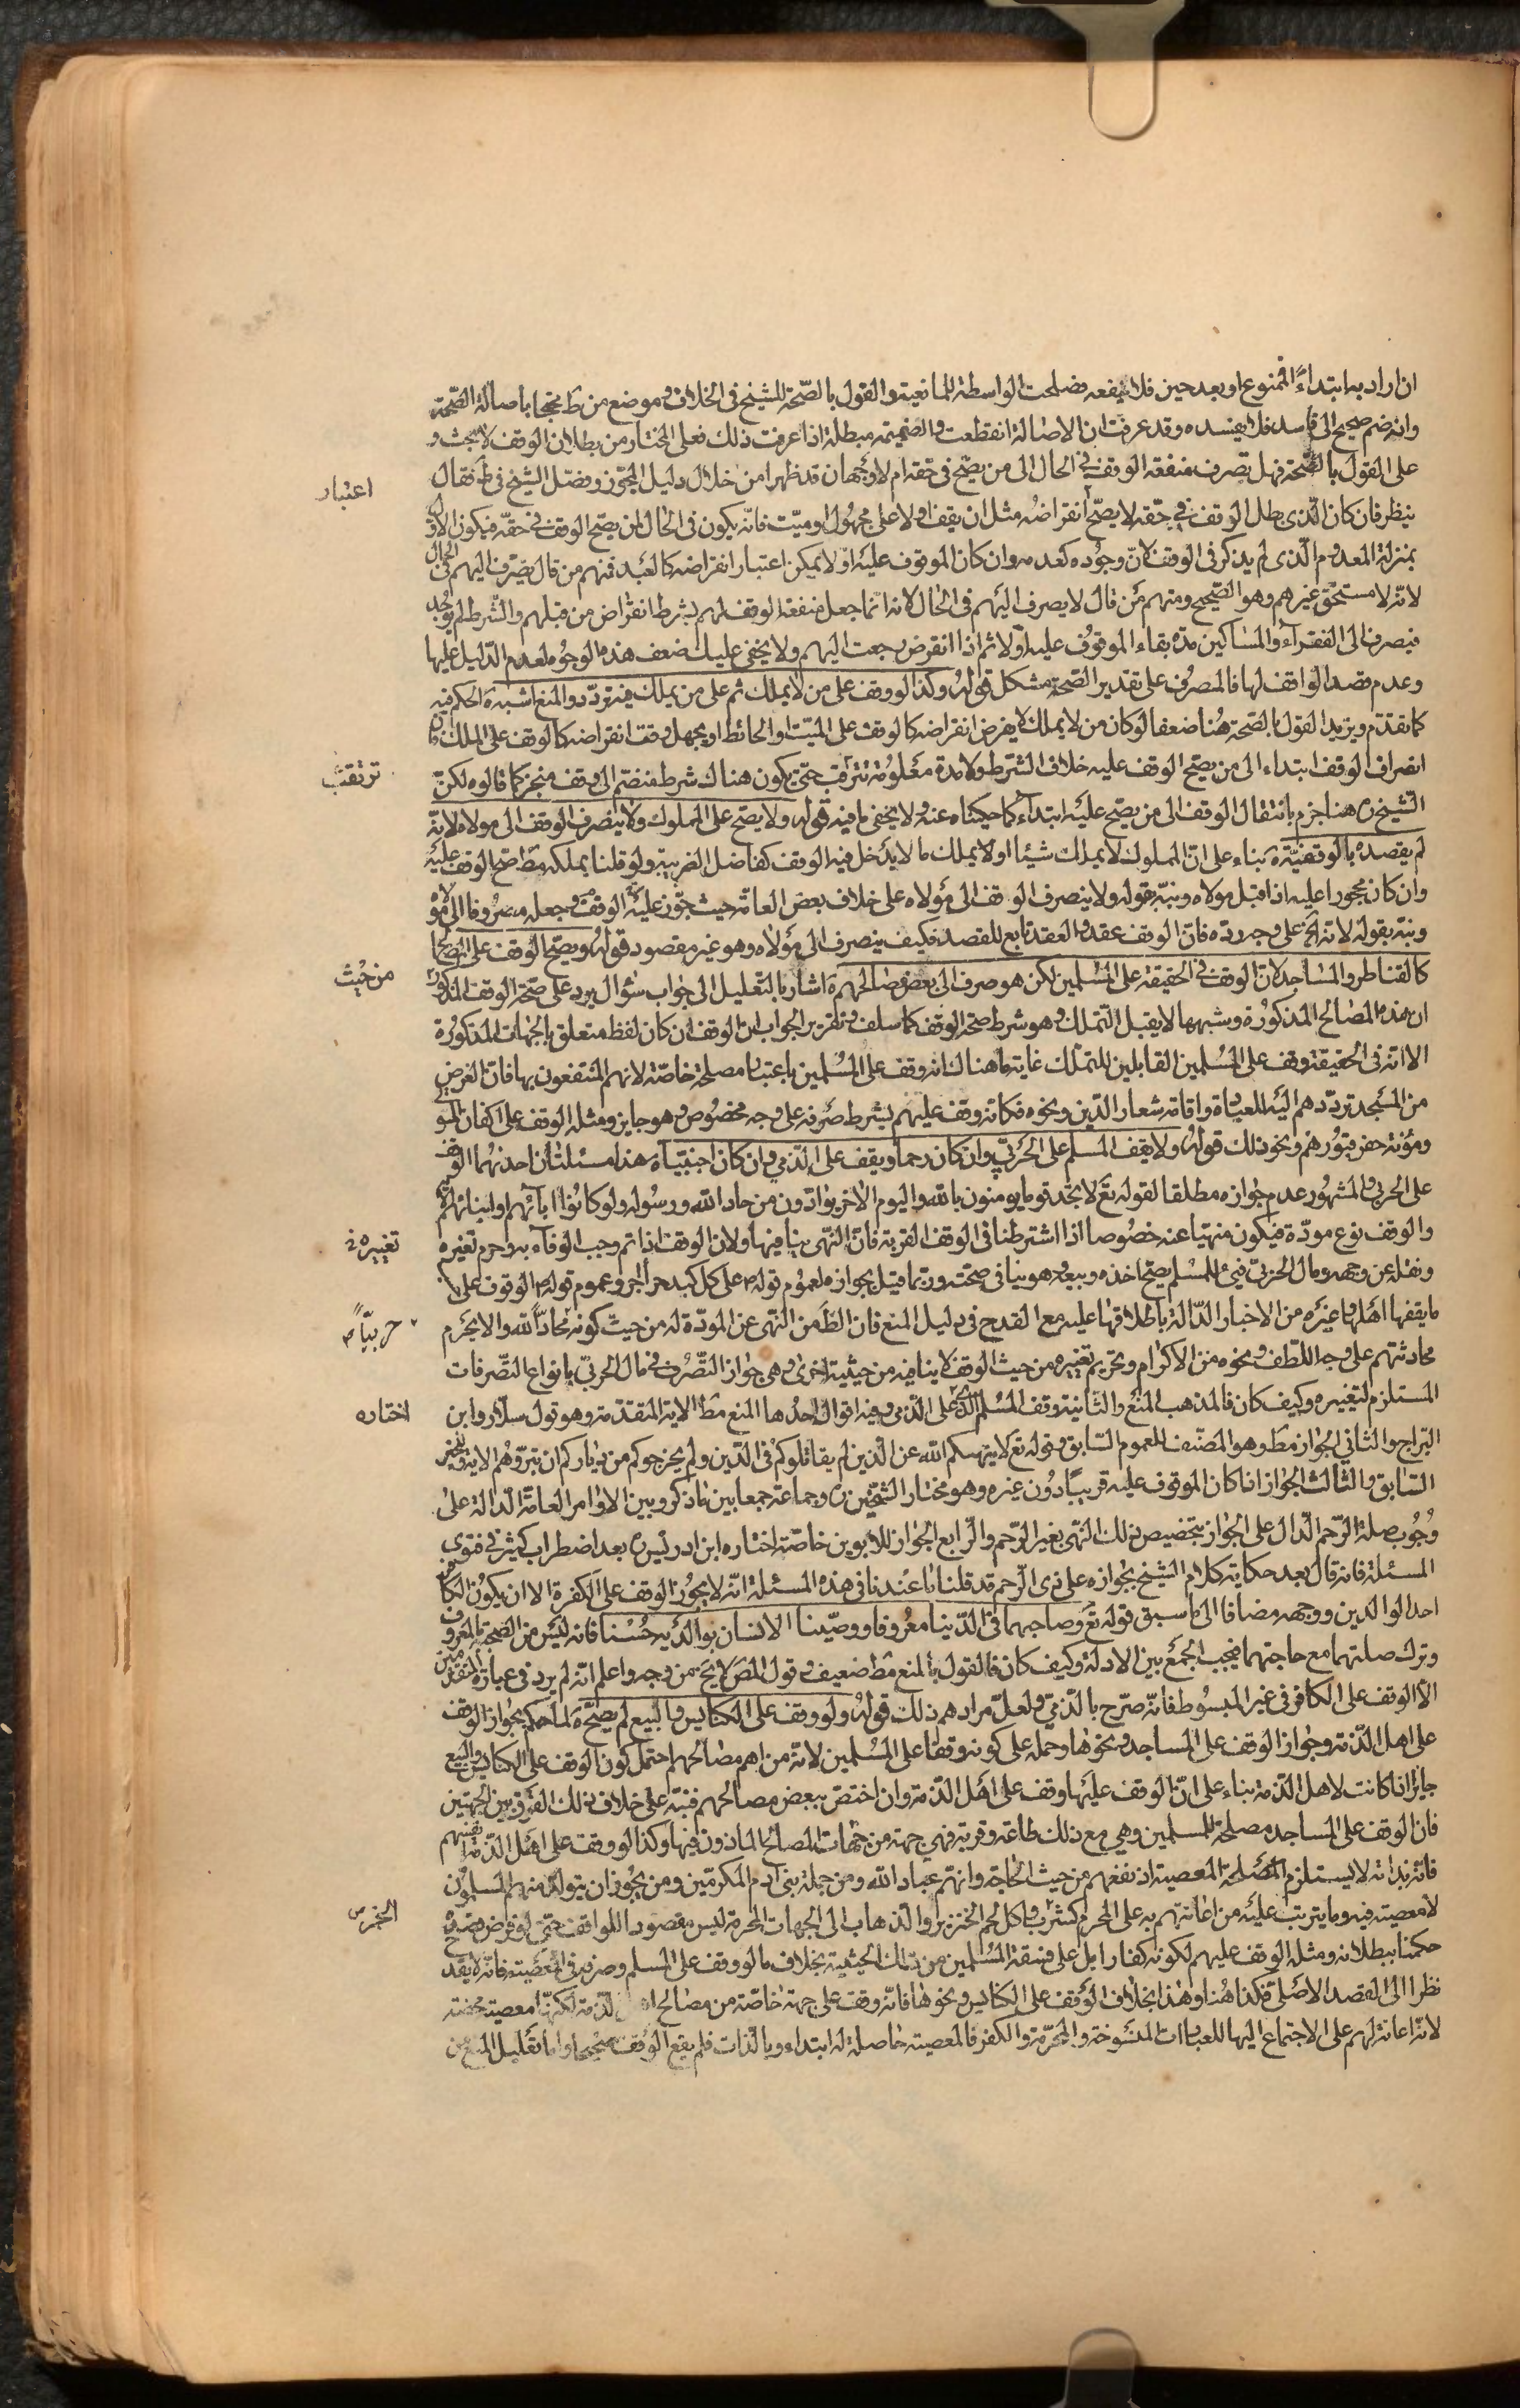 ان اراد به ابتداءً فممنوع او بعد حين فلا ينفعه فصلحت الواسطة للمانعية والقول بالصحّة للشيخ فى الخلاف و موضع من ط محتجا باصالة الصّحة
وانه ضم صحيح الى فاسد فلا يفسده وقد عرفت ان الاصالة انقطعت والضميمة مبطلة اذا عرفت ذلك فعلى المختار من بطلان الوقف لا بحث و
على القول بالصّحة فهل يصرف منفعة الوقف فى الحال الى من يصّح فى حقه ام لا وجهان قد ظهرا من خلال دليل المجوّز وفصّل الشيخ فى ط فقال
اعتبار
ينظر فان كان الّذى بطل الوقف فى حقّه لا يصّح انقراضه مثل ان يقف اولا على مجهول او ميّت فانّه يكون فى الحال لمن يصّح الوقف فى حقه فيكون الاول
بمنزلة المعدوم الّذى لم يذكر فى الوقف لانّ وجوده كعدمه وان كان الموقوف عليه اوّلا يمكن اعتبار انقراضه كالعبد فمنهم من قال يصرف اليهم فى الحال
لانّه لا مستحقّ غيرهم وهو الصّحيح ومنهم من قال لا يصرف اليهم فى الحال لانه انّما جعل منفعة الوقف لهم بشرط انقراض من قبلهم والشّرط لم يوجد
فيصرف الى الفقرآء والمساكين مدّة بقاء الموقوف عليه اوّلا ثم اذا انقرض رجعت اليهم ولا يخفى عليك ضعف هذه الوجوه لعدم الدّليل عليها
وعدم قصد الواقف لها فالمصرف على تقدير الصّحة مشكل قوله وكذا لو وقف على من لا يملك ثم على من يملك فيه تردّد والمنع اشبه ة الحكم فيه
كما تقدّم ويزيد القول بالصّحة هنا ضعفا لو كان من لا يملك لا يفرض انقراضه كالوقف على الميّت او الحائط او يجهل وقت انقراضه كالوقف على الملك فان
انصراف الوقف ابتداء الى من يصّح الوقف عليه خلاف الشّرط ولا مدة معلومة تترقّب حتّى يكون هناك شرط منضم الى وقف منجز كما قالوه لكنّ
ترتقب
الشّيخ ره هنا جزم بانتقال الوقف الى من يصّح عليه ابتداءً كما حكيناه عنه ولا يخفى ما فيه قوله ولا يصّح على المملوك ولا ينصرف الوقف الى مولاه لانه
لم يقصده بالوقفيّة ة بناء على انّ المملوك لا يملك شيئا او لا يملك ما لا يدخل فيه الوقف كفاضل الضريبة ولو قلنا يملكه مط صّح الوقف عليه
وان كان محجورا عليه اذا قبل مولاه ونبّه بقوله ولا ينصرف الوقف الى مولاه على خلاف بعض العامّة حيث جوّز عليه الوقف وجعله مصروفا الى مولاه
ونبّه بقوله لانه الخ على وجه ردّه فانّ الوقف عقد والعقد تابع للقصد فكيف ينصرف الى مولاه وهو غير مقصود قوله ويصّح الوقف على المصالح
كالقناطر والمساجد لانّ الوقف فى الحقيقة على المسلمين لكن هو صرف الى بعض مصالحهم ة اشار بالتّعليل الى جواب سئوال يرد على صّحة الوقف المذكور
من حيث
ان هذه المصالح المذكورة وشبهها لا يقبل التّملك وهو شرط صحّة الوقف كما سلف وتقرير الجواب انّ الوقف ان كان لفظه متعلق بالجهات المذكورة
الا انّه فى الحقيقة وقف على المسلمين القابلين للتملك غاية ما هناك انه وقف على المسلمين باعتبار مصلحة خاصّة لانهم المنتفعون بها فانّ الغرض
من المسجد تردّدهم اليه للعبادة واقامة شعار الدّين ونحوه فكانه وقف عليهم بشرط صرفه على وجه مخصوص وهو جايز ومثله الوقف على اكفان الموتى
ومؤنة حفر قبورهم ونحو ذلك قوله ولا يقف المسلم على الحربىّ وان كان رحما ويقف على الذّمى وان كان اجنبيّا ة هذا مسئلتان احدهما الوقف
على الحربى والمشهور عدم جوازه مطلقا لقوله تع لا تجد قوما يومنون بالله واليوم الاخر يوادّون من حاد الله ورسوله ولو كانوا ابآئهم او ابنائهم الاية
والوقف نوع مودّة فيكون منهيّا عنه خصوصا اذا اشترطنا فى الوقف القربة فانّ النّهى ينافيها ولان الوقف اذا تم وجب الوفآء به وحرم تغيره
تغييره خ
ونقله عن وجهه ومال الحربىّ فىء للمسلم يصّح اخذه وبيعه وهو ينافى صحّته وربّما قيل بجوازه لعموم قوله ص على كل كبد حرا اجر وعموم قوله ع الوقوف على
ما يقفها اهلها وغيره من الاخبار الدّالة باطلاقها عليه مع القدح فى دليل المنع فان الظّ من النّهى عن المودّة له من حيث كونه محادّا لله والا لحرم
حربيّاً ص
محادثتهم على وجه اللّطف ونحوه من الاكرام وتحريم تغييره من حيث الوقف لا ينافيه من حيثية اخرى وهى جواز التّصرف فى مال الحربىّ بانواع التصّرفات
المستلزم لتغييره وكيف كان فالمذهب المنع والثّانية وقف المسلم على الذّمى وفيه اقوال احدها المنع مط للاية المتقدّمة وهو قول سلّار وابن
اختاره
البرّاج والثّانى الجواز مط وهو المصّنف للعموم السّابق وقوله تع لا ينهيكم الله عن الّذين لم يقاتلوكم فى الدّين ولم يخرجوكم من دياركم ان تبرّوهم الاية وللخبر
السّابق والثّالث الجواز اذا كان الموقوف عليه قريبا دون غيره وهو مختار الشّيخين ره وجماعة جمعا بين ما ذكر وبين الاوامر العامّة الدّالة على
وجوب صلة الرّحم الدّال على الجواز بتخصيص ذلك النّهى بغير الرّحم والرّابع الجواز للابوين خاصّة اختاره ابن ادريس ره بعد اضطراب كثير فى فتوى
المسئلة فانه قال بعد حكاية كلام الشّيخ بجوازه على ذى الرّحم قد قلنا ما عندنا فى هذه المسئلة انّه لا يجوز الوقف على الكفرة الا ان يكون الكافر
احد الوالدين ووجهه مضافا الى ما سبق قوله تع وصاحبهما فى الدّنيا معروفا ووصّينا الانسان بوالديه حسنا فانه ليس من الصّحبة بالمعروف
وترك صلتهما مع حاجتهما فيجب الجمع بين الادلة وكيف كان فالقول بالمنع مط ضعيف وقول المص لا يخ من وجه واعلم انّه لم يرد فى عبارة المتقدّمين
الا الوقف على الكافر فى غير المبسوط فانّه صرّح بالذّمى ولعلّ مرادهم ذلك قوله ولو وقف على الكنايس والبيع لم يصّح ة لما حكم بجواز الوقف
على اهل الذّمة وجواز الوقف على المساجد ونحوها وحمله على كونه وقفا على المسلمين لانّه من اهم مصالحهم احتمل كون الوقف على الكنايس والبيع
جايزا اذا كانت لاهل الذّمة بناء على انّ الوقف عليها وقف على اهل الذّمة وان اختصّ ببعض مصالحهم فنبّه على خلاف ذلك الفرق بين الجهتين
فان الوقف على المساجد مصلحة للمسلمين وهى مع ذلك طاعة وقربة فهى جهة من جهات المصالح الماذون فيها وكذا لو وقف على اهل الذّمة انفسهم
فانّه بذاته لا يستلزم المصلحة المعصية اذ نفعهم من حيث الحاجة وانهم عباد الله ومن جملة بنى آدم المكرّمين ومن يجوز ان يتولّد منهم المسلمون
لا معصية فيه وما يترتب عليه من اعانتهم به على المحرم كشرب واكل لحم الخنزير والذّهاب الى الجهات المحرمة ليس مقصودا للواقف حتى لو فرض قصده
الخمر ص
حكمنا ببطلانه ومثله الوقف عليهم لكونه كفارا بل على فسقة المسلمين من تلك الحيثية بخلاف ما لو وقف على المسلم وصرفه فى المعصية فانّه لا يقدح
نظرا الى القصد الاصلى فكذا هنا وهذا بخلاف الوقف على الكنايس ونحوها فانّه وقف على جهة خاصّة من مصالح اهل الذّمة لكنها معصية محضة
لانّه اعانة لهم على الاجتماع اليها للعبادات المنسوخة والمحرّمة والكفر فالمعصية حاصلة له ابتداء وبالذّات فلم يقع الوقف صحيحا واما تعليل المنع من